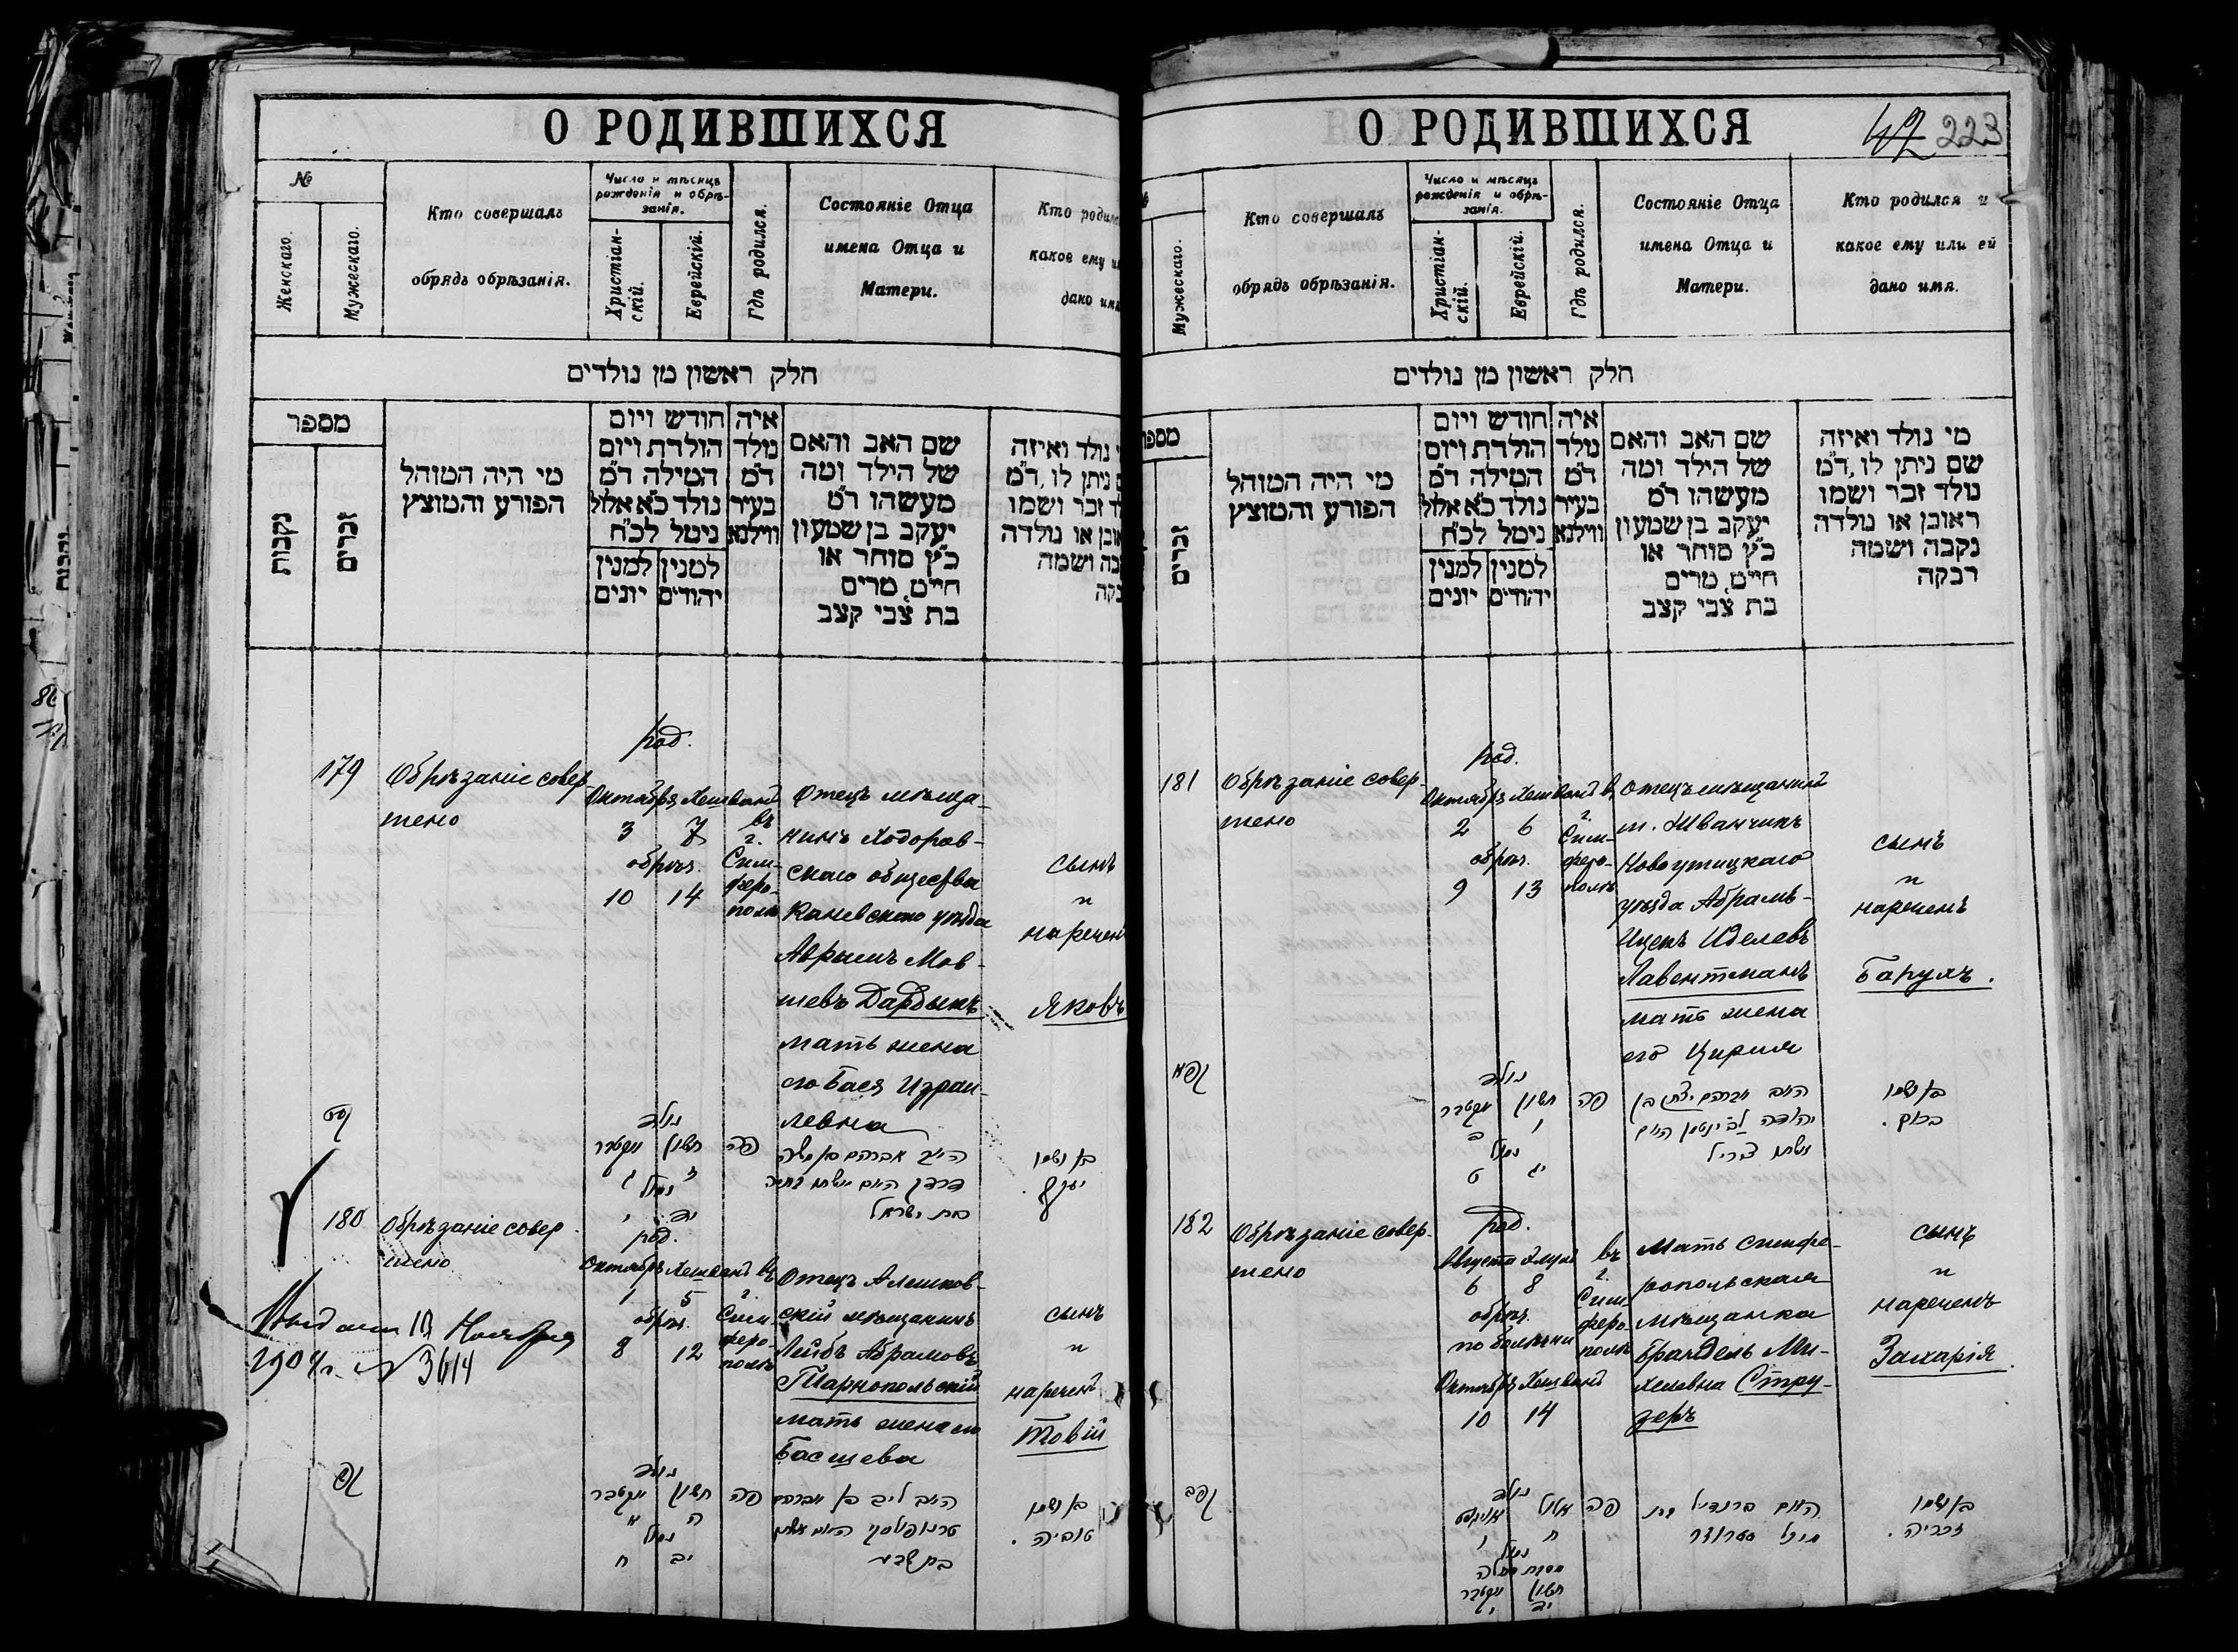 О РОДИВШИХСЯ
№
Женскаго.
Мужескаго.
Кто совершалъ
обрядъ обрѣзанія.
Число и мѣсяцъ
рожденія и обрѣ-
занія.
Христіан-
скій.
Еврейскій.
Гдѣ родился.
Состояніе Отца
имена Отца и
Матери.
Кто родил
какое ему и
дано имя
חלק ראשון מן נולדים
מספר
נקבות
זכרים
מי היה המוהל
הפורע והמוצץ
חודש ויום
הולדת ויום
המילה ד״מ
נולד כ״א אלול
נימל לכ״ח
למנין למנין
יהודים יונים
איה
נולד
ד״מ
בעיר
ווילנא
שם האב והאם
של הילד ומה
מעשהו ד״מ
יעקב בן שמעון
כ״ץ סוחר או
חייט, מרים
בת צבי קצב
נולד ואיזה
ניתן לו, ד״מ
לד זכר ושמו
אובן או נולדה
בה ושמה
בקה
179
Обрѣзаніе совер-
шено
род.
Октября Хешванъ
3 7
обрѣз.
10 14
въ
г.
Сим-
феро-
полѣ
Отецъ мѣща-
нинъ Ходоров-
скаго общества
Каневскаго уѣзда
Аврумъ Мов-
шевъ Дардыкъ
мать жена
его Бася Израи-
левна
сынъ
и
нареченъ
Яковъ
נולד
חשון
פה
בן ושמו
יעקב.
בת ישראל
180
Обрѣзаніе совер-
шено
род.
Октябрь Хешванъ въ
1 5 г.
обрѣз. Сим-
8 12 феро-
полѣ
Отецъ Алешков-
скій мѣщанинъ
Лейбъ Абрамовъ
Тарнопольскій
мать жена его
Басшева
сынъ
и
нареченъ
Товій
Ноября
1904 г. № 3614
נולד
חשון
פה
האב ליב בן אברהם
בת שבע
בן ושמו
טוביה.
О РОДИВШИХСЯ
223
Мужескаго.
Кто совершалъ
обрядъ обрѣзанія.
Число и мѣсяцъ
рожденія и обрѣ-
занія.
Христіан-
скій.
Еврейскій.
Гдѣ родился.
Состояніе Отца
имена Отца и
Матери.
Кто родился и
какое ему или ей
дано имя.
חלק ראשון מן נולדים
מספר
זכרים
מי היה המוהל
הפורע והמוצץ
חודש ויום
הולדת ויום
המילה ד״מ
נולד כ״א אלול
נימל לכ״ח
למנין למנין
יהודים יונים
איה
נולד
ד״מ
בעיר
ווילנא
שם האב והאם
של הילד ומה
מעשהו ד״מ
יעקב בן שמעון
כ״ץ סוחר או
חייט, מרים
בת צבי קצב
מי נולד ואיזה
שם ניתן לו, ד״מ
נולד זכר ושמו
ראובן או נולדה
נקבה ושמה
רבקה
181
Обрѣзаніе совер-
шено
род.
Октября Хешванъ въ
2 6 г.
обрѣз. Сим-
9 13 феро-
полѣ
Отецъ мѣщанинъ
м. Жванчикъ
Новоушицкаго
уѣзда Абрамъ-
Ицекъ Иделевъ
Лавентманъ
мать жена
его Цирля
сынъ
и
нареченъ
Барухъ.
נולד
חשון
פה
האב אברהם יצחק בן
בן ושמו
ברוך.
182
Обрѣзаніе совер-
шено
род.
Августа Элулъ въ
6 8 г.
обрѣз. Сим-
по болѣзни феро-
полѣ
Октябрь Хешванъ
10 14
Мать симфе-
ропольская
мѣщанка
Брандель Ми-
хелевна Стру-
деръ
сынъ
и
нареченъ
Захарія.
נולד
אלול
פה
האם ברנדיל בת
בן ושמו
זכריה.
חשון